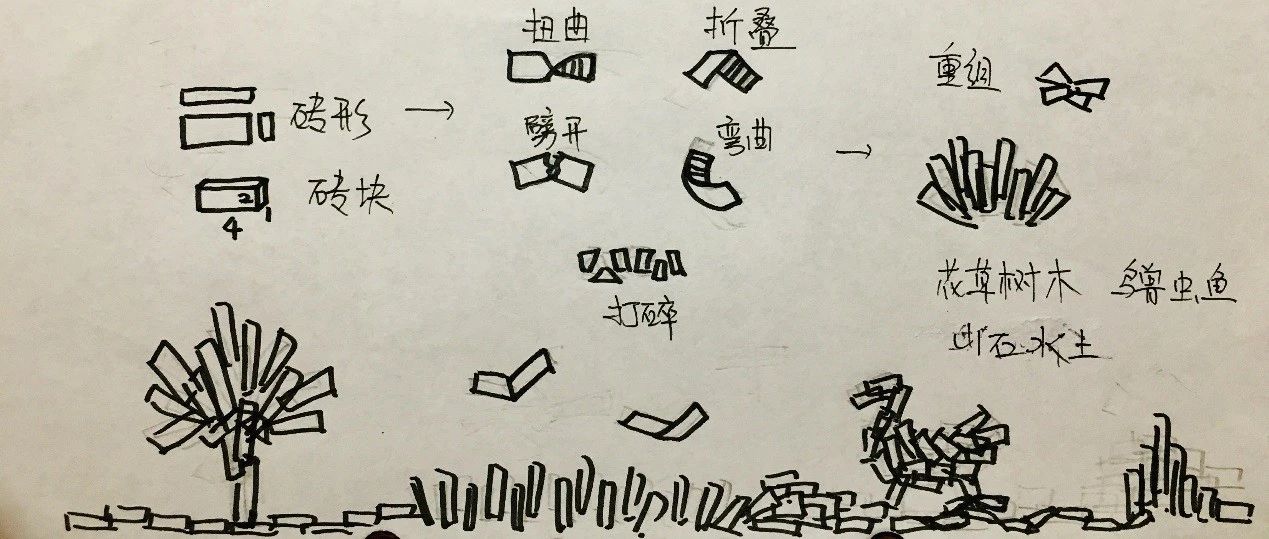 扭曲
折叠
重组
砖形
劈开
弯曲
砖块
2
1
4
打碎
花草树木 鸟兽虫鱼
山石水土